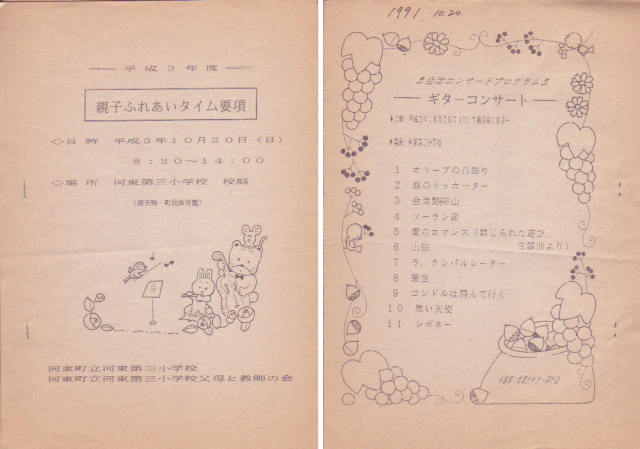 平成3年度
親子ふれあいタイム要項
◇日 時 平成3年10月20日(日)
8:20~14:00
◇場 所 河東第三小学校 校庭
(雨天時・町民体育館)
河東町立河東第三小学校
河東町立河東第三小学校父母と教師の会
1991. 10.20
♬会津コンサートプログラム♬
ギターコンサート
1 オリーブの首飾り
2 涙のトッカータ
3 会津磐梯山
4 ソーラン節
5 愛のロマンス(禁じられた遊び
主題曲より)
6 山猫
7 ラ.クンパルシーター
8 碧空
9 コンドルは飛んで行く
10 黒い天使
11 シボネー